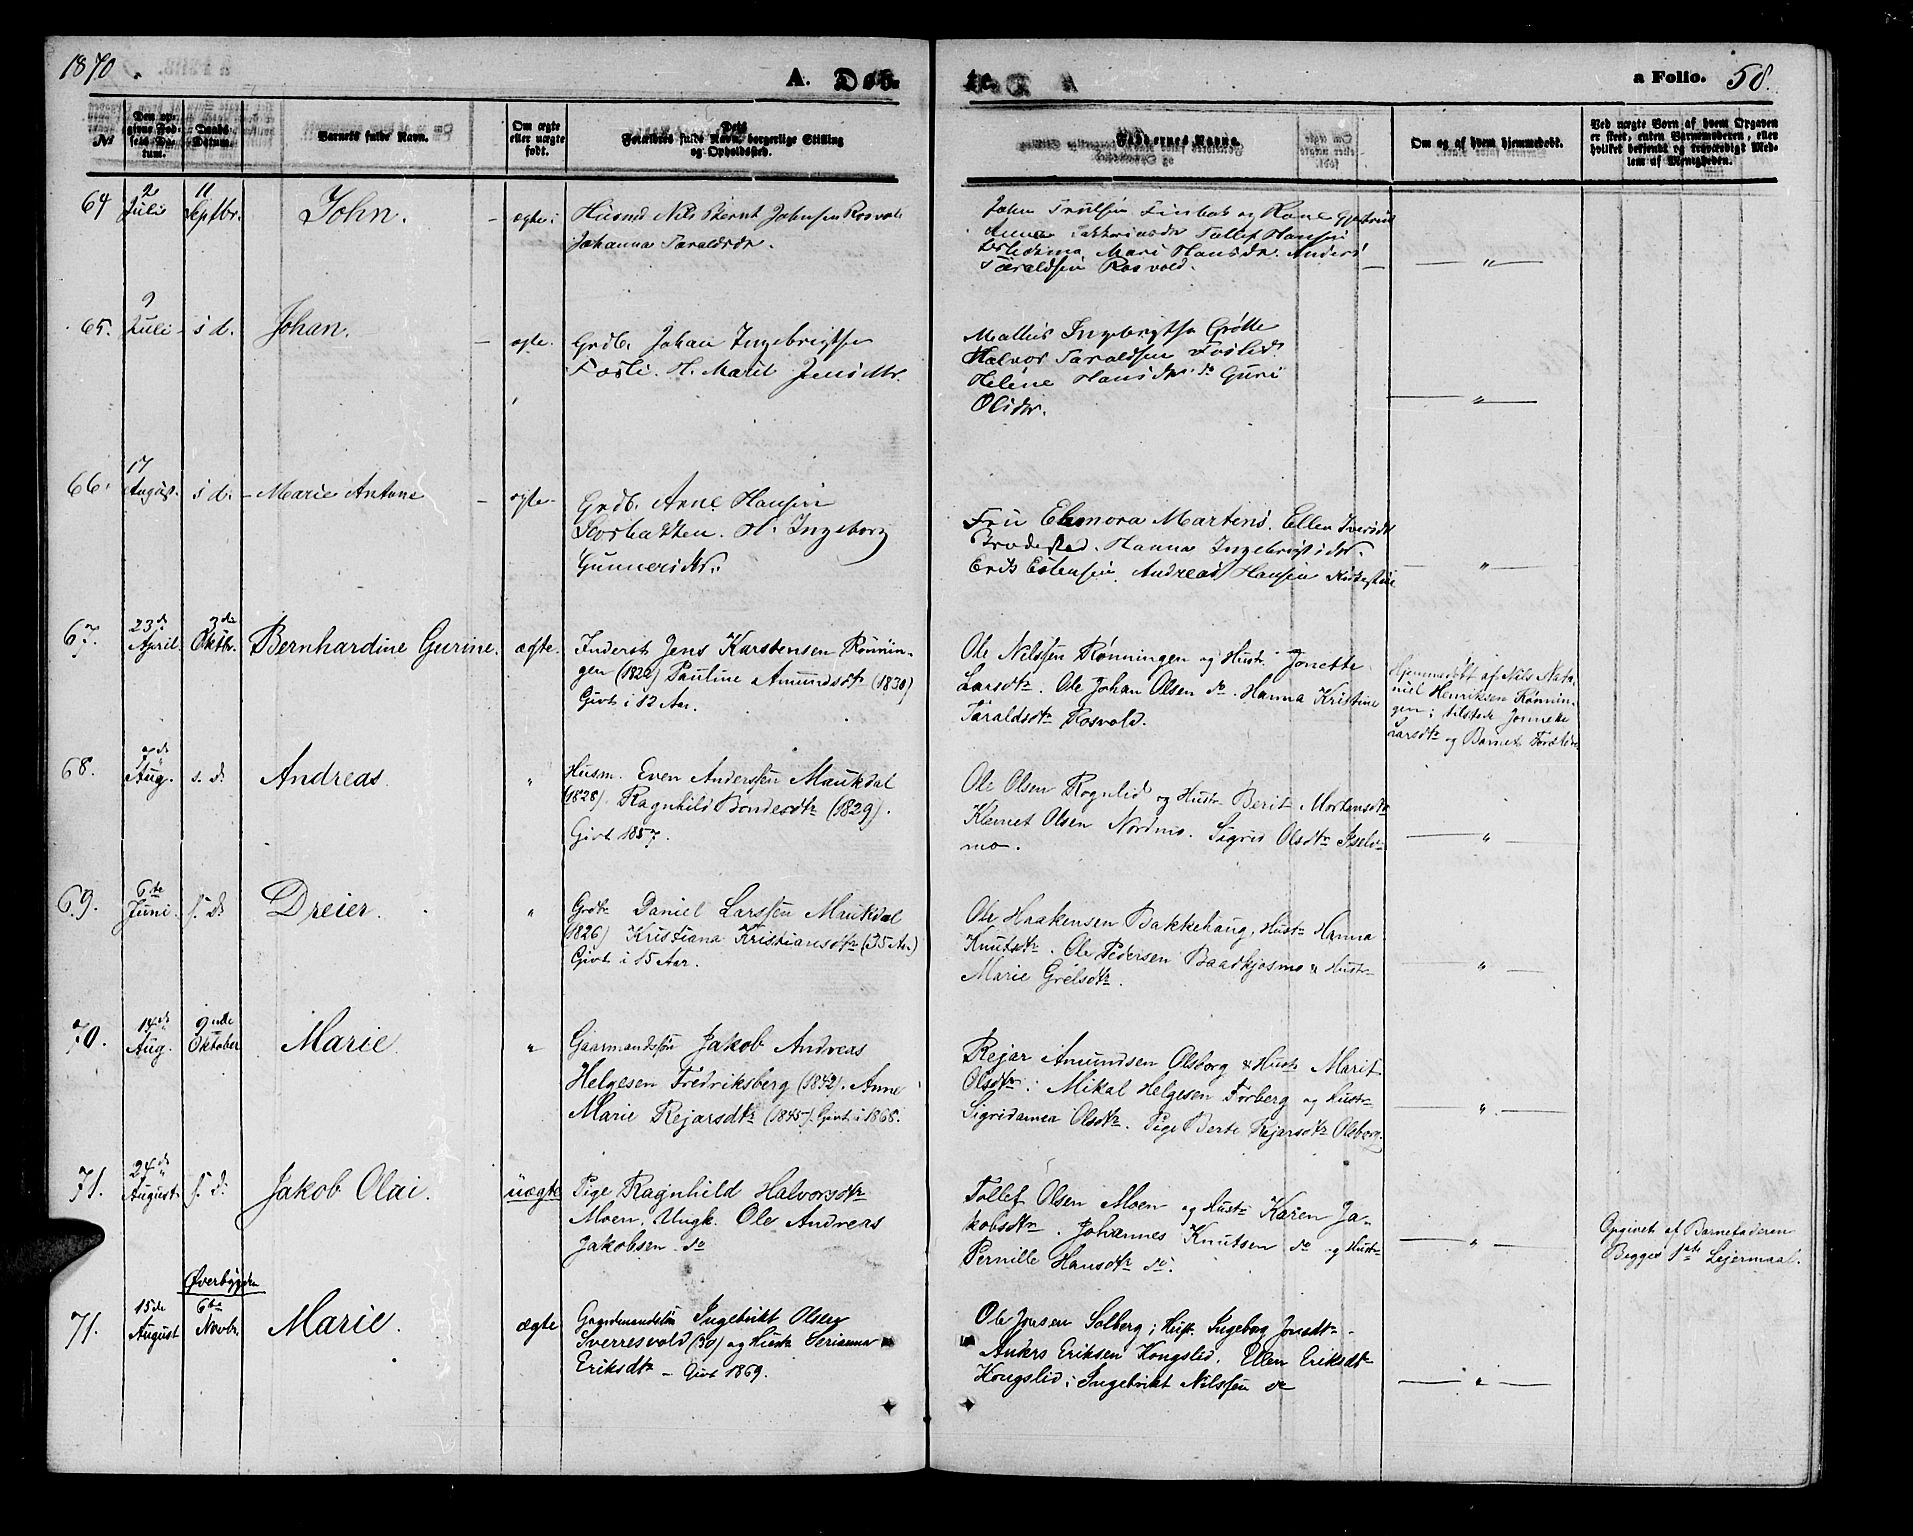 1870.
A. Døb-
te.
a Folio. 58.
No
Den op-
givne Fød-
sels Da-
tum.
Daabs
Datum.
Barnets fulde Navn.
Om ægte
eller uægte
født.
Dets
Forældres fulde Navn, borgerlige Stilling
og Opholdssted.
Faddernes Navne.
Om og af hvem hjemmedøbt.
Ved uægte Børn af hvem Opgaven
er skeet, enten Barnemoderen, eller
hvilket bekjendt og troværdigt Med-
lem af Menigheden.
64
2 Juli
11 Septbr.
John.
ægte
Husmd Nils Bernt Johnsen Rosvold
Johanna Taraldsdr.
John Trulsen og Kone
Anna Tollef Hansen
Mari Hansdr. Anders
Taraldsen Rosvold.
"
65.
9 Juli
s d.
Johan.
ægte.
Grdb. Johan Ingebrigtsen
Fosli. H. Marit Jensdtr.
Mattius Ingebrigtsn Grøtte
Halvor Taraldsen Foslid.
Helene Hansdtr. do Guri
Olsdtr.
"
66.
17 August.
s d.
Marie Antone
ægte
Grdb. Arne Hansen
H. Ingeborg
Gunnersdtr.
Fru Elenora Martens. Ellen Iversdt
Hanna Ingebrigtsdtr.
Erik Estensen Andreas Hansen
"
67.
23de April.
2de Oktbr.
Bernhardine Gurine.
ægte.
Inderst Jens Karstensen Rønnin-
gen (1822) Pauline Amundsdtr (1830)
Givt i 12 Aar.
Ole Nilssen Rønningen og Hustr. Jonette
Larsdtr. Ole Johan Olsen do. Hanna Kristine
Taraldsdtr Rosvold.
Hjemmedøbt af Nils Nata-
niel Henriksen Rønnin-
gen; tilstede Jonnette
Larsdtr og Barnets Forældre
68.
Aug.
s. d.
Andreas
"
Husm. Even Anderssen Maukdal
(1828). Ragnhild Bondesdtr (1829).
Givt 1857.
Ole Olsen Rognlid og Hustr Berit Mortensdtr
Klemet Olsen Nordmo. Sigrid Olsdtr Iselv-
mo.
"
69.
6te Juni.
s. d.
Dreier.
"
Grdbr Daniel Larssen Maukdal
(1826) Kristiana Kristiansdtr (35 Aar)
Givt i 15 Aar.
Ole Haakensen Bakkehaug, Hustr Hanna
Knutsdtr. Ole Pedersen Baadkjosmo & Hustr
Marie Grelsdtr.
"
70.
14de Aug.
9nde Oktober
Marie
"
Gaarmandssøn Jakob Andreas
Helgesen Fredriksberg (1842). Anne
Marie Rejarsdtr (1845). Givt i 1868.
Rejar Amundsen Olsborg & Hustr Marit
Olsdtr. Mikal Helgesen Forberg og Hustr
Sigridanna Olsdtr. Pige Berte Rejarsdtr Olsborg.
"
71.
24de August
s. d.
Jakob Olai.
uægte
Pige Ragnhild Halvorsdtr
Moen. Ungk. Ole Andreas
Jakobsen do
Tollef Olsen Moen og Hustr Karen Ja-
kobsdtr. Johannes Knutsen do og Hustr
Pernille Hansdtr do.
"
Opgivet af Barnefaderen
Begges 1ste Lejermaal.
Øverbygden
71.
15de August
6te Novbr.
Marie.
ægte
Gaardmandssøn Ingebrikt Olsen
Sverresvold (30) og Hustr Serianna
Eriksdtr – Givt 1869.
Ole Jonsen Solberg; Hust. Ingeborg Jonsdtr.
Anders Eriksen Kongslid. Ellen Eriksdtr
Kongslid; Ingebrikt Nilssen do
"